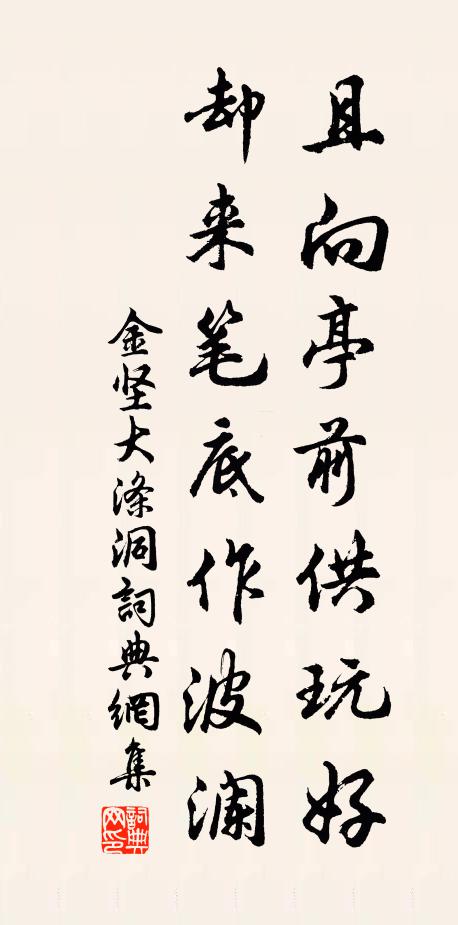 且向亭前供玩好
却来笔底作波澜
金坚大涤洞詞典網集
詞典网印